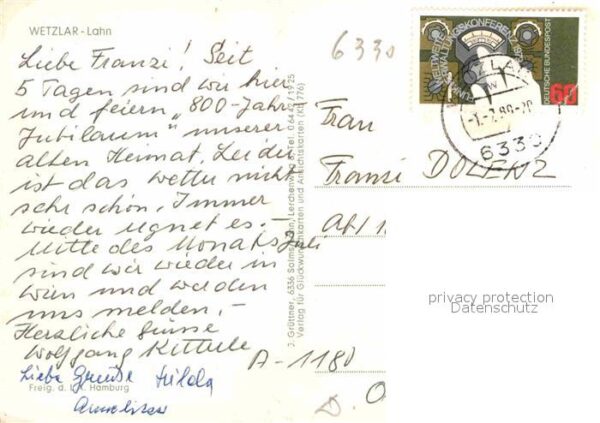 WETZLAR - Lahn
Liebe Franzi! Seit
5 Tagen sind wir hier
und feiern "800-Jahr
Jubiläum" unserer
alten Heimat. Leider
ist das Wetter nicht
sehr schön. Immer
wieder regnet es.-
Mitte des Monats Juli
sind wir wieder in
Wien und werden
uns melden.-
Herzliche Grüsse
Wolfgang
Liebe Grüße
Freig. d. Hamburg
J. Grüttner, 6336 Solms
Verlag für Glückwunschkarten und Ansichtskarten
6330
DEUTSCHE BUNDESPOST
60
6330
Frau
Franzi DOLENZ
A-1180
privacy protection
Datenschutz